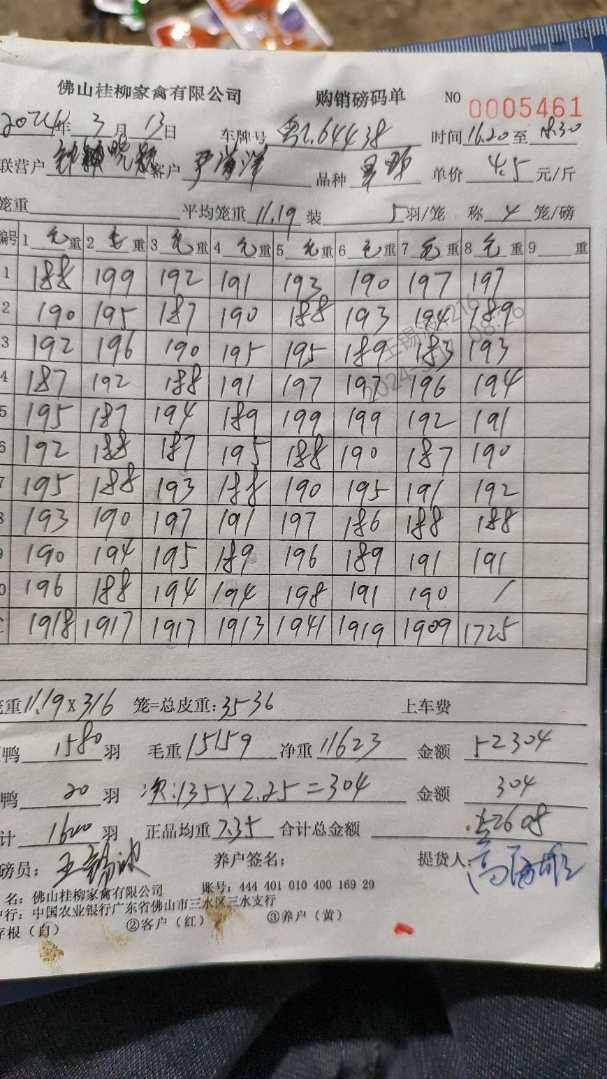 佛山桂柳家禽有限公司 购销磅码单 NO 0005461
2024年 3月 13日 车牌号 粤Z.64438 时间 16.20 至 18.30
联营户 客户 尹 品种 单价 4.5 元/斤
笼重 平均笼重 11.19 装 5 羽/笼 称 4 笼/磅
编号 1 毛重 2 毛重 3 毛重 4 毛重 5 毛重 6 毛重 7 毛重 8 毛重 9 重
1 188 199 192 191 193 190 197 197
2 190 195 187 190 188 193 194 189
3 192 196 190 195 195 189 183 193
4 187 192 188 191 197 197 196 194
5 195 187 194 189 199 199 192 191
6 192 188 187 195 188 190 187 190
7 195 188 193 188 190 195 191 192
8 193 190 197 191 197 186 188 188
9 190 194 195 189 196 189 191 191
0 196 188 194 194 198 191 190 /
1918 1917 1917 1913 1941 1919 1909 1725
笼重 11.19 x 316 笼=总皮重: 3536 上车费
鸭 1580 羽 毛重 15159 净重 11623 金额 52304
鸭 20 羽 次: 135 x 2.25 = 304 金额 304
计 1600 羽 正品均重 7.35 合计总金额 52608
磅员: 王锡波 养户签名: 提货人: 高
名: 佛山桂柳家禽有限公司 账号: 444 401 010 400 169 29
户行: 中国农业银行广东省佛山市三水区三水支行
存根（白） ②客户（红） ③养户（黄）